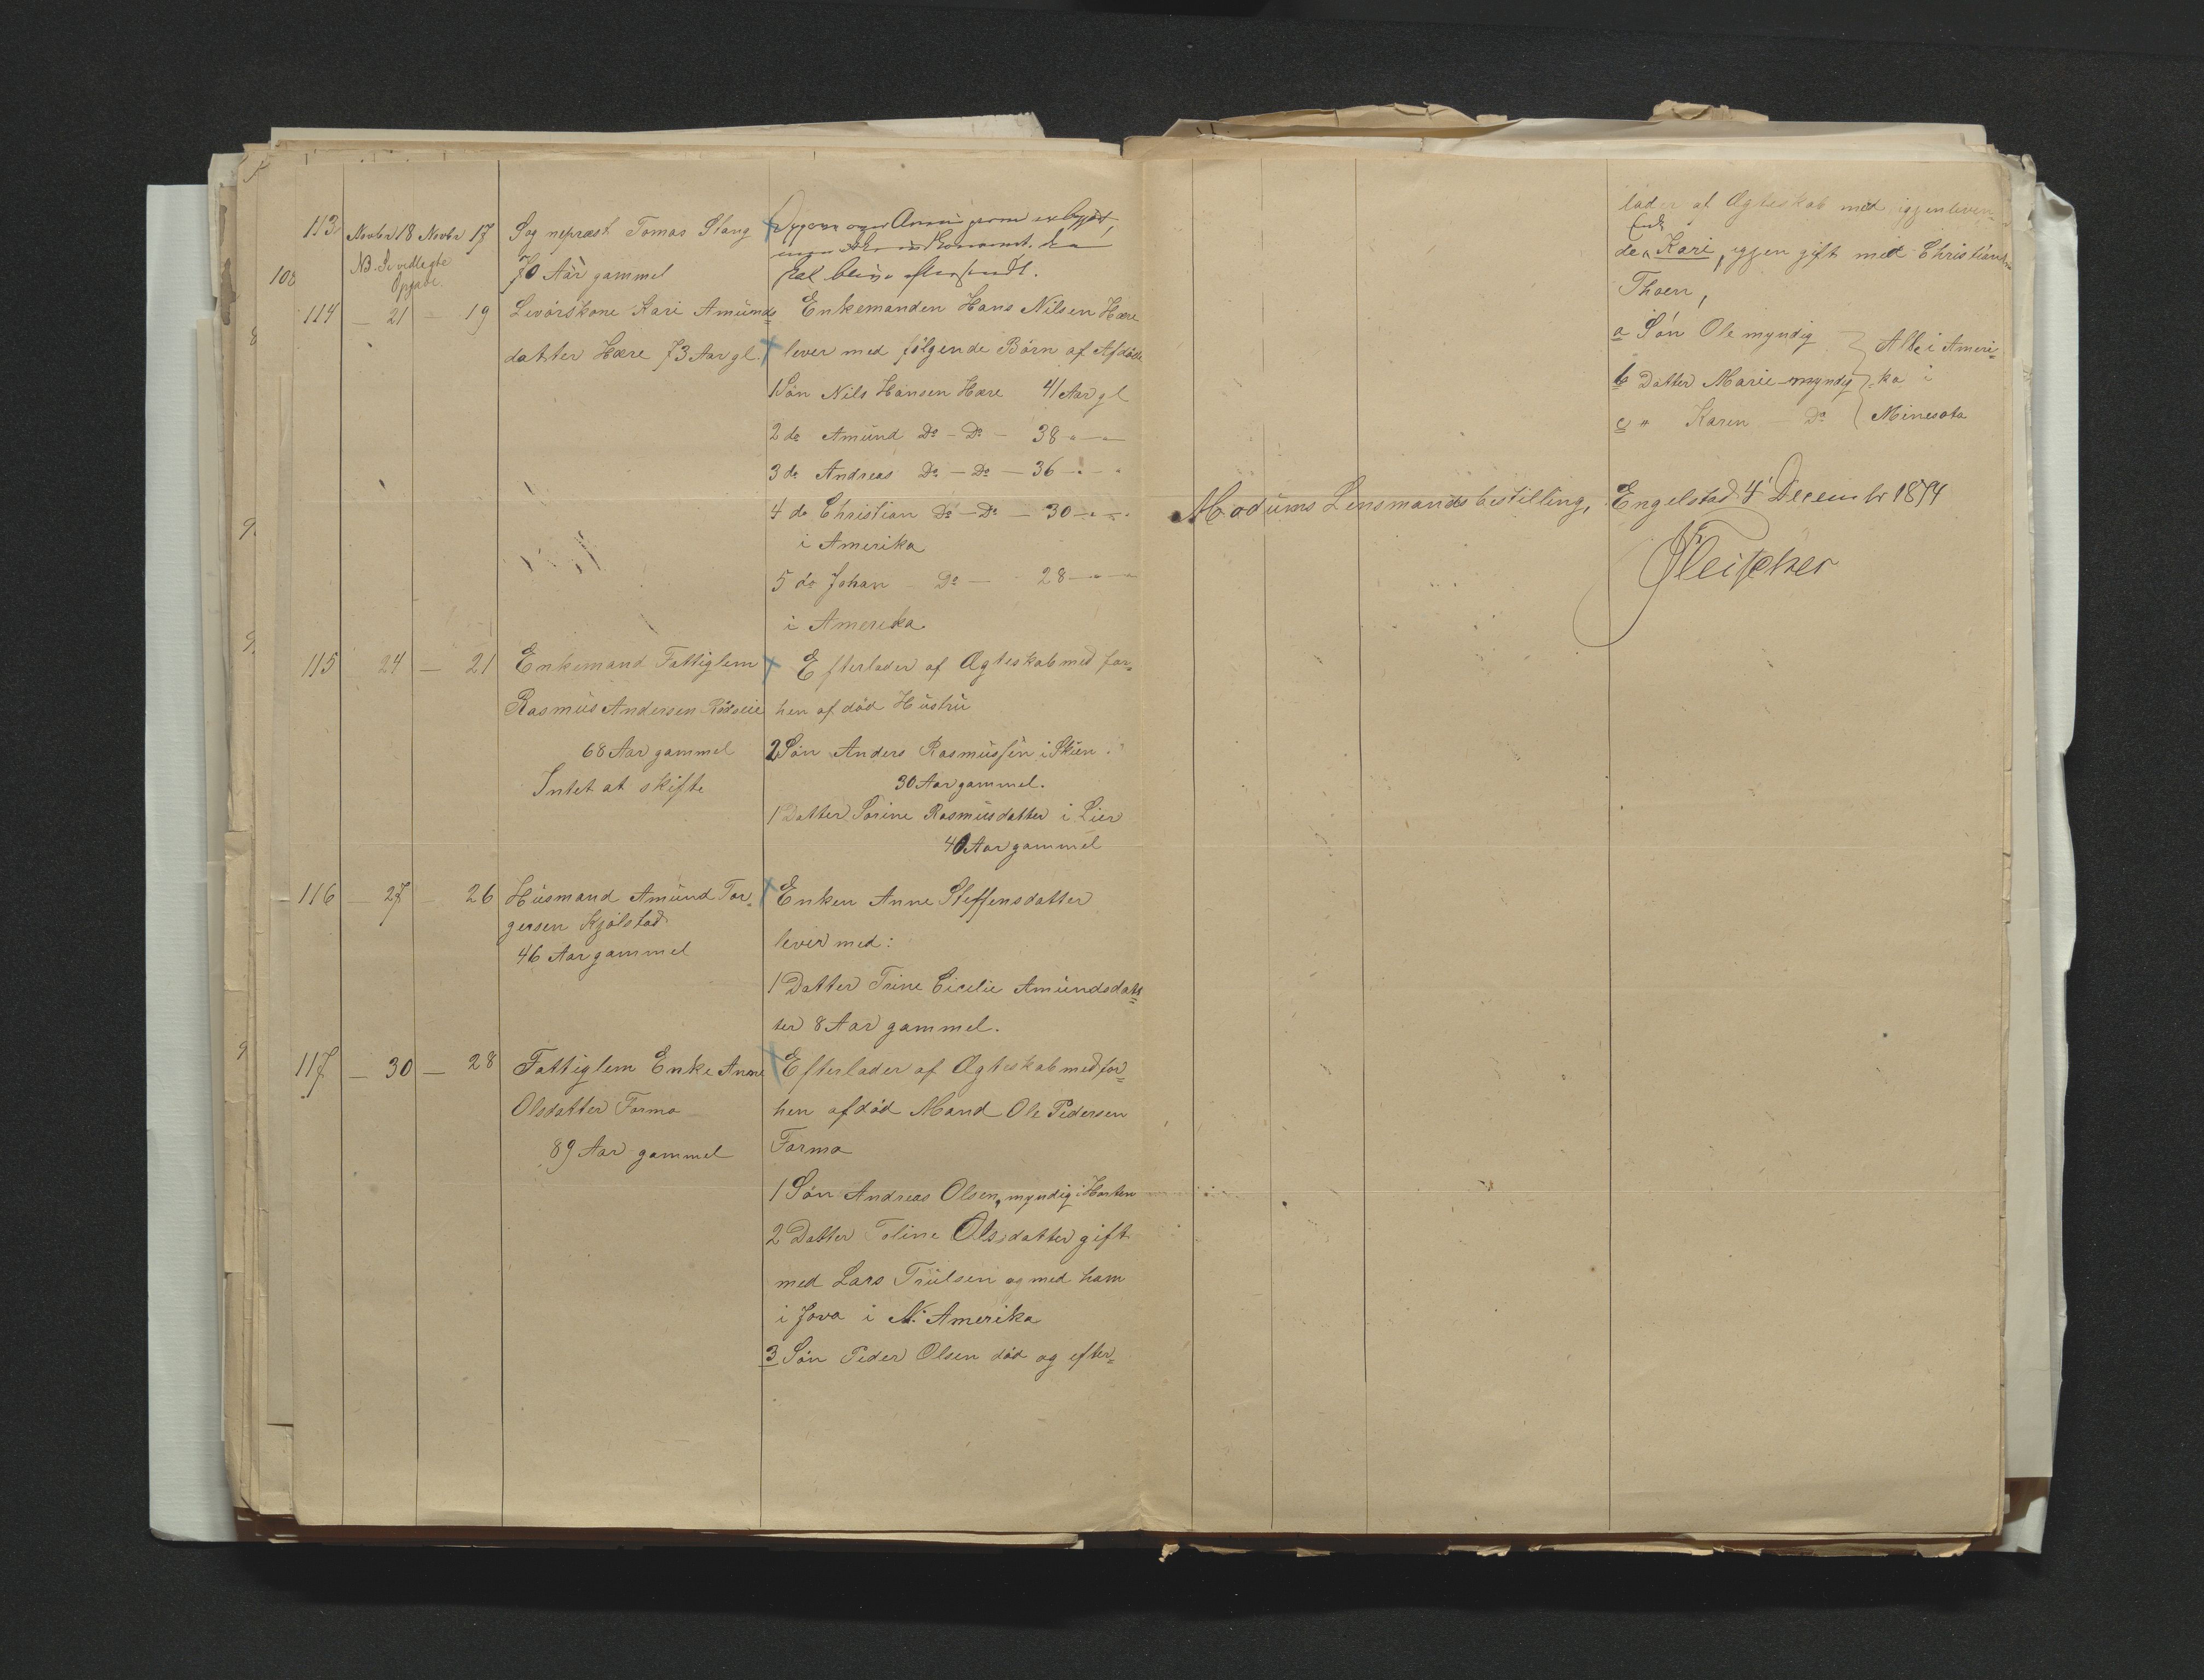 113 Novbr 18 Novbr 17 Sognepræst Tomas Stang
NB. Se vedlagte
Opgave.
70 Aar gammel
skal blive eftersendt.
108
114 — 21 — 19 Levórskone Kari Amunds= Enkemanden Hans Nilsen Hære
datter Hære 73 Aar gl. lever med fölgende Börn af Afdöde
1 Sön Nils Hansen Hære 41 Aar gl
2 do Amund Do — Do — 38 — " —
3 do Andreas Do — Do — 36 — " — "
4 do Christian Do — Do — 30 — " — "
i Amerika
5 do Johan — Do — 28 — " —
i Amerika
115 24 — 21 Enkemand Fattiglem Efterlader af Ægteskab med for=
Rasmus Andersen hen afdöd Hustru
68 Aar gammel 2 Sön Anders Rasmussen i Skien
Intet at skifte 30 Aar gammel.
1 Datter Sorine Rasmusdatter i Lier
40 Aar gammel
116 — 27 — 26 Husmand Amund Tor= Enken Anne Steffensdatter
gersen Kjölstad
46 Aar gammel lever med:
1 Datter Trine Cicilie Amundsdat=
ter 8 Aar gammel.
117 — 30 — 28 Fattiglem Enke Anne Efterlader af Ægteskab med for=
Olsdatter Formo hen afdöd Mand Ole Pedersen
89 Aar gammel Formo
1 Sön Andreas Olsen, myndig i Horten
2 Datter Toline Olsdatter gift
med Lars Trulsen og med ham
i Jova i N. Amerika
3 Sön Peder Olsen död og efter=
lader af Ægteskab med igjenleven=
Enke
de Kari, igjen gift med Christian
Thoen,
a Sön Ole myndig
b Datter Marie myndig
c " Karen Do
Alle i Ameri=
ka i
Minesota
Modums Lensmandsbestilling, Engelstad 4 Decembr 1894
Fleischer